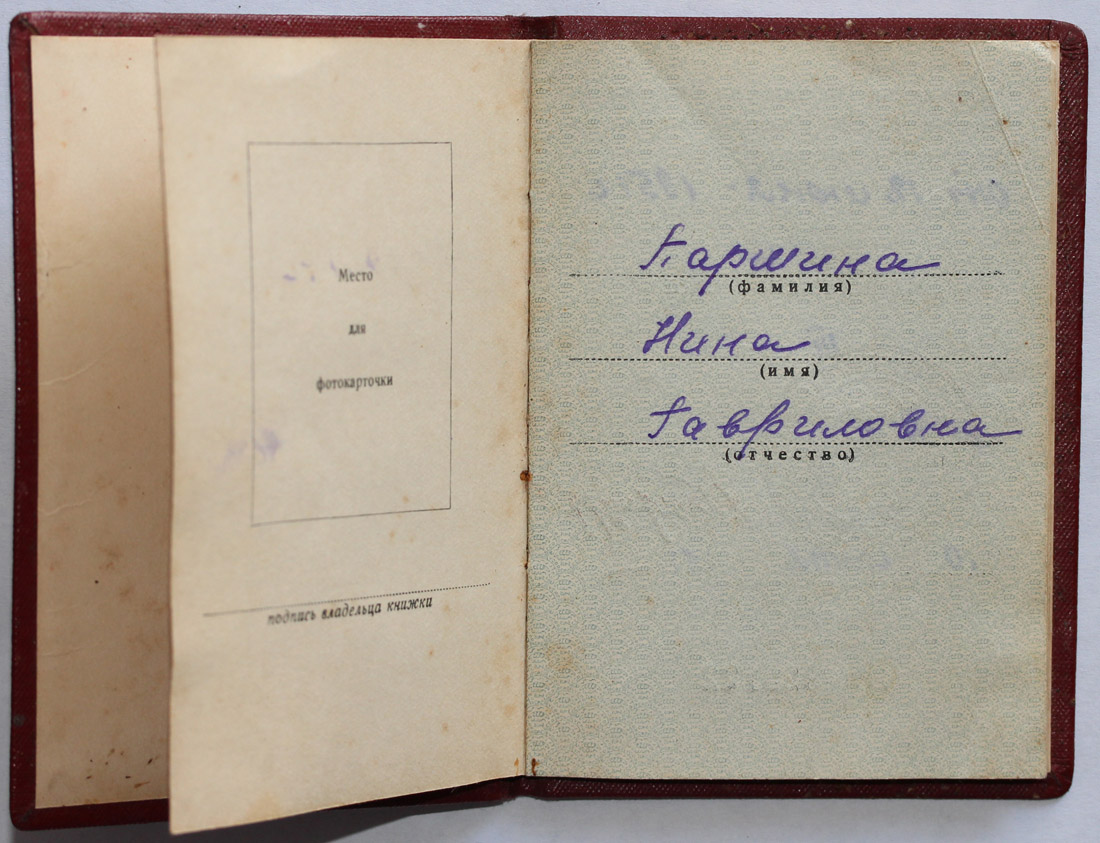 Место
для
фотокарточки
подпись владельца книжки
Паршина
(фамилия)
Нина
(имя)
Гавриловна
(отчество)